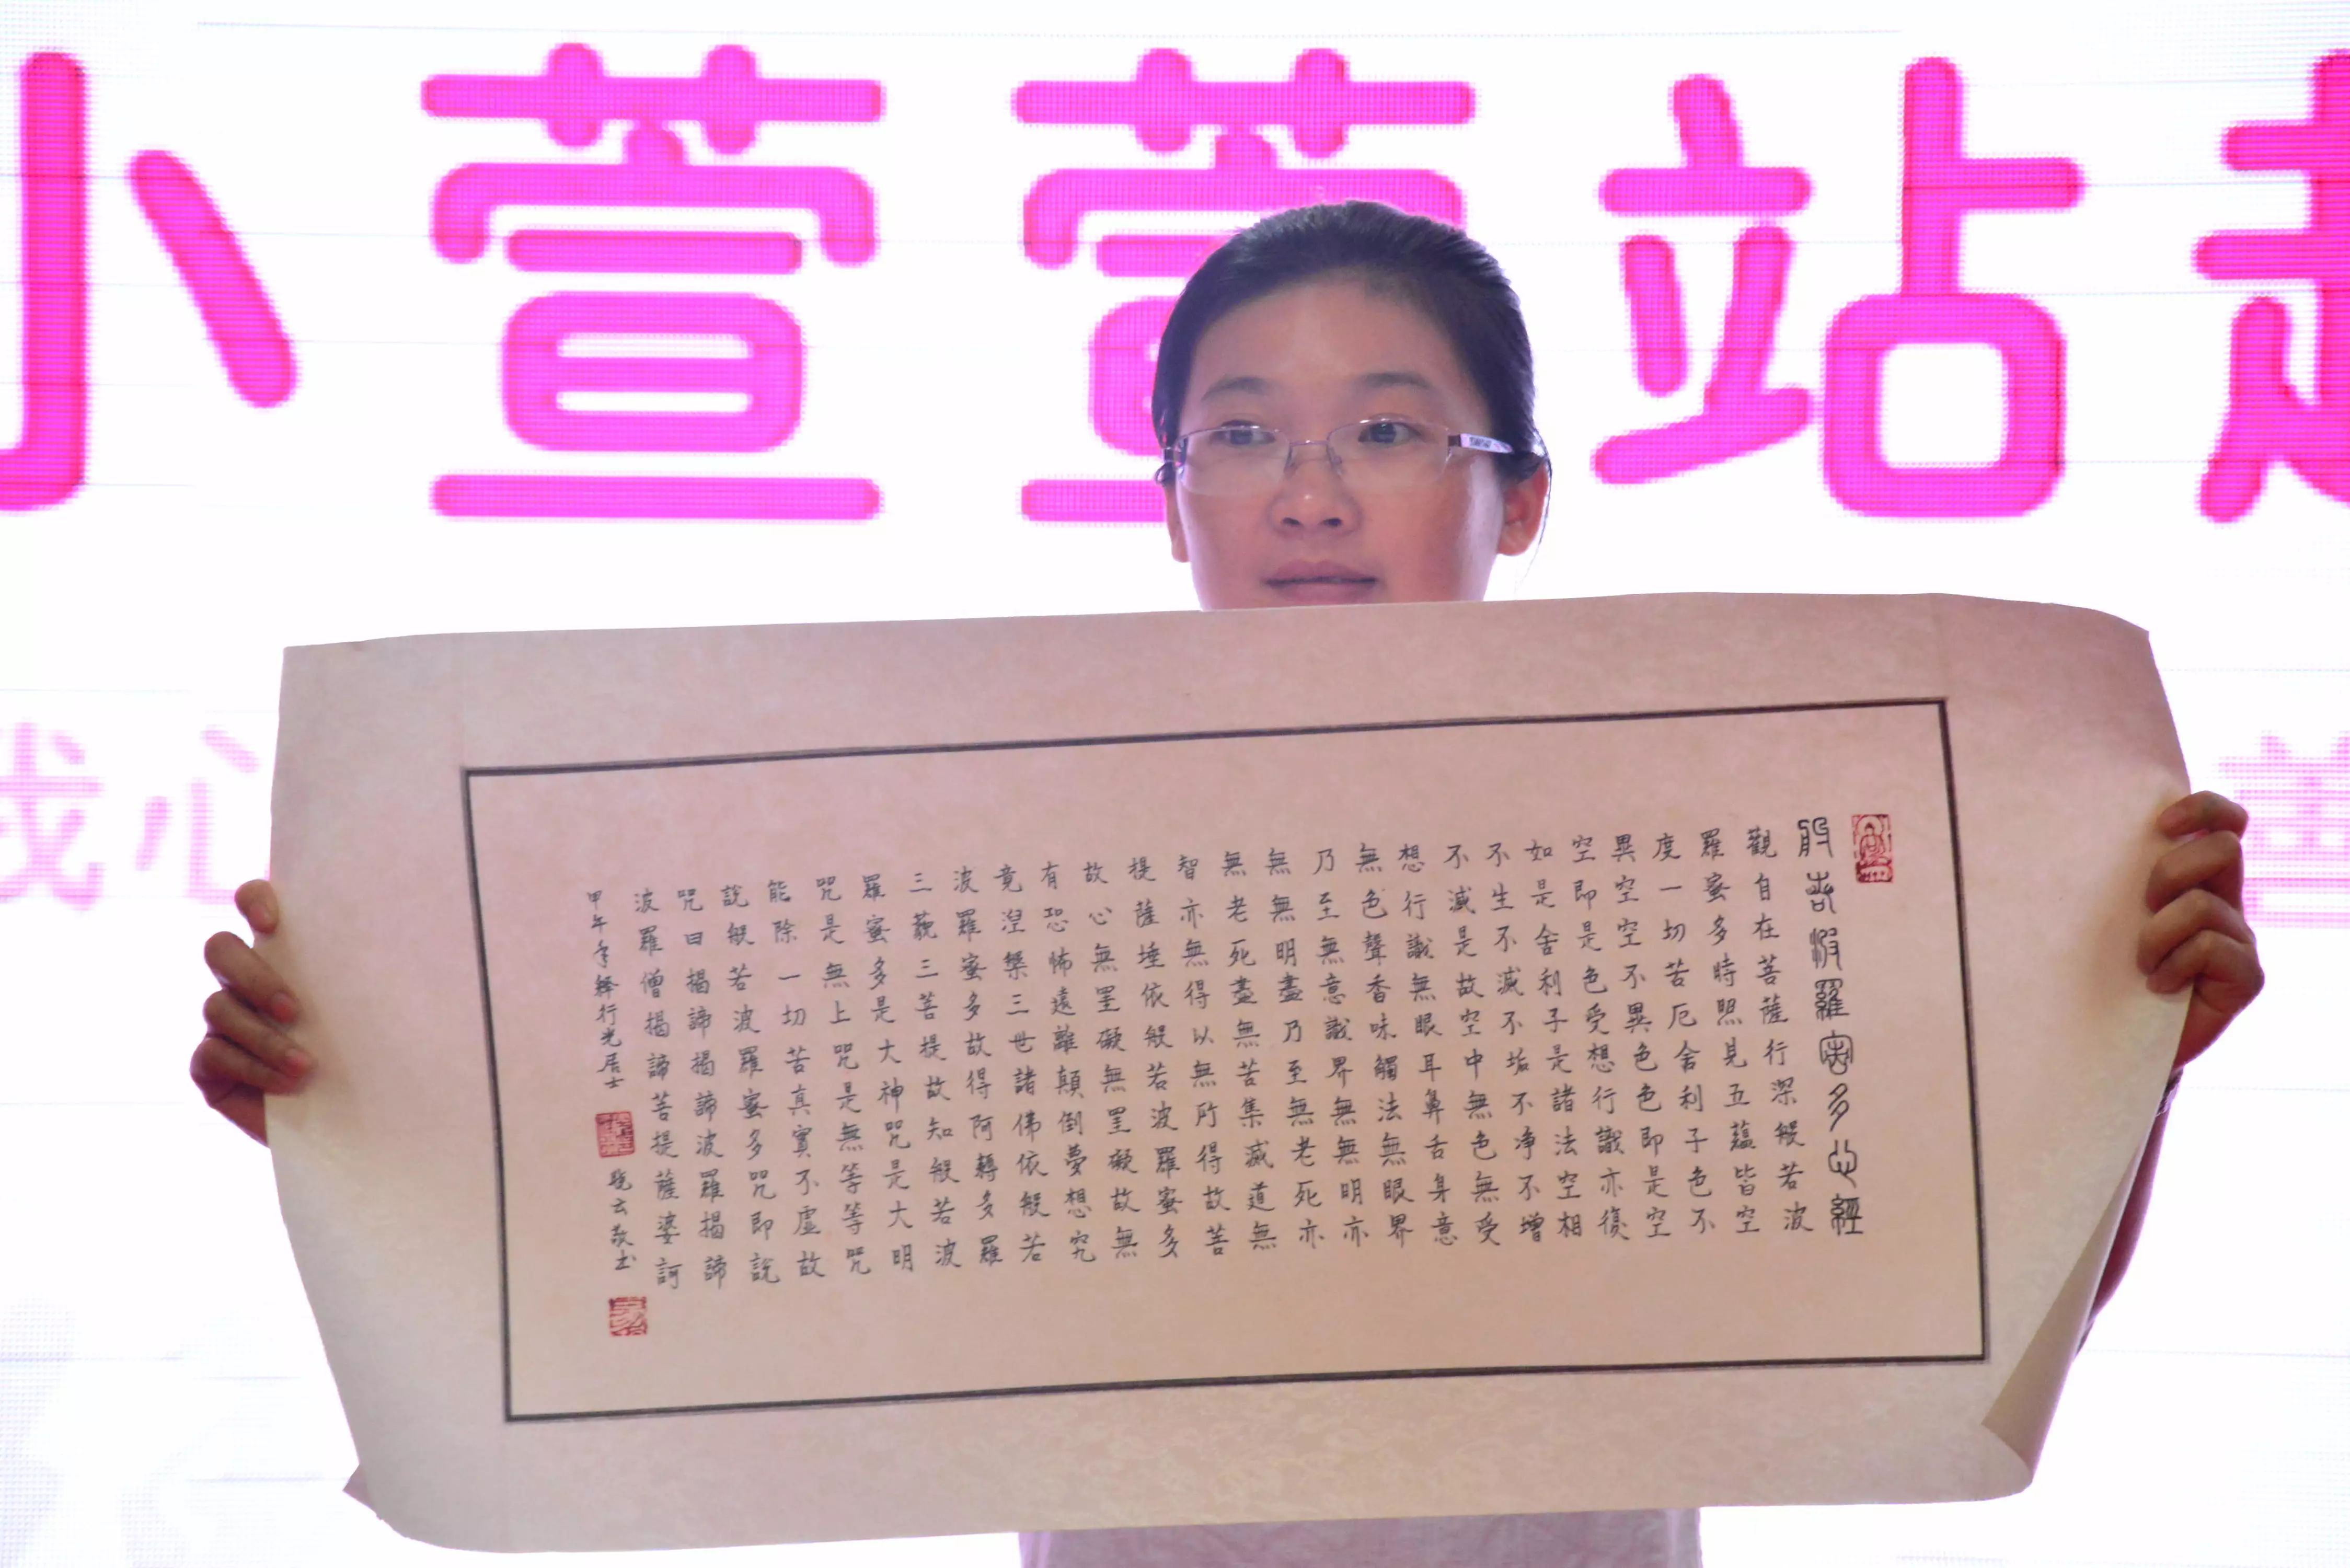 小萱萱站起
我心 善
般若波羅密多心經
觀自在菩薩行深般若波
羅蜜多時照見五蘊皆空
度一切苦厄舍利子色不
異空空不異色色即是空
空即是色受想行識亦復
如是舍利子是諸法空相
不生不滅不垢不净不增
不減是故空中無色無受
想行識無眼耳鼻舌身意
無色聲香味觸法無眼界
乃至無意識界無無明亦
無無明盡乃至無老死亦
無老死盡無苦集滅道無
智亦無得以無所得故菩
提薩埵依般若波羅蜜多
故心無罣礙無罣礙故無
有恐怖遠離顛倒夢想究
竟涅槃三世諸佛依般若
波羅蜜多故得阿耨多羅
三藐三菩提故知般若波
羅蜜多是大神咒是大明
咒是無上咒是無等等咒
能除一切苦真實不虛故
說般若波羅蜜多咒即說
咒曰揭諦揭諦波羅揭諦
波羅僧揭諦菩提薩婆訶
甲午年釋行光居士 曉云敬书